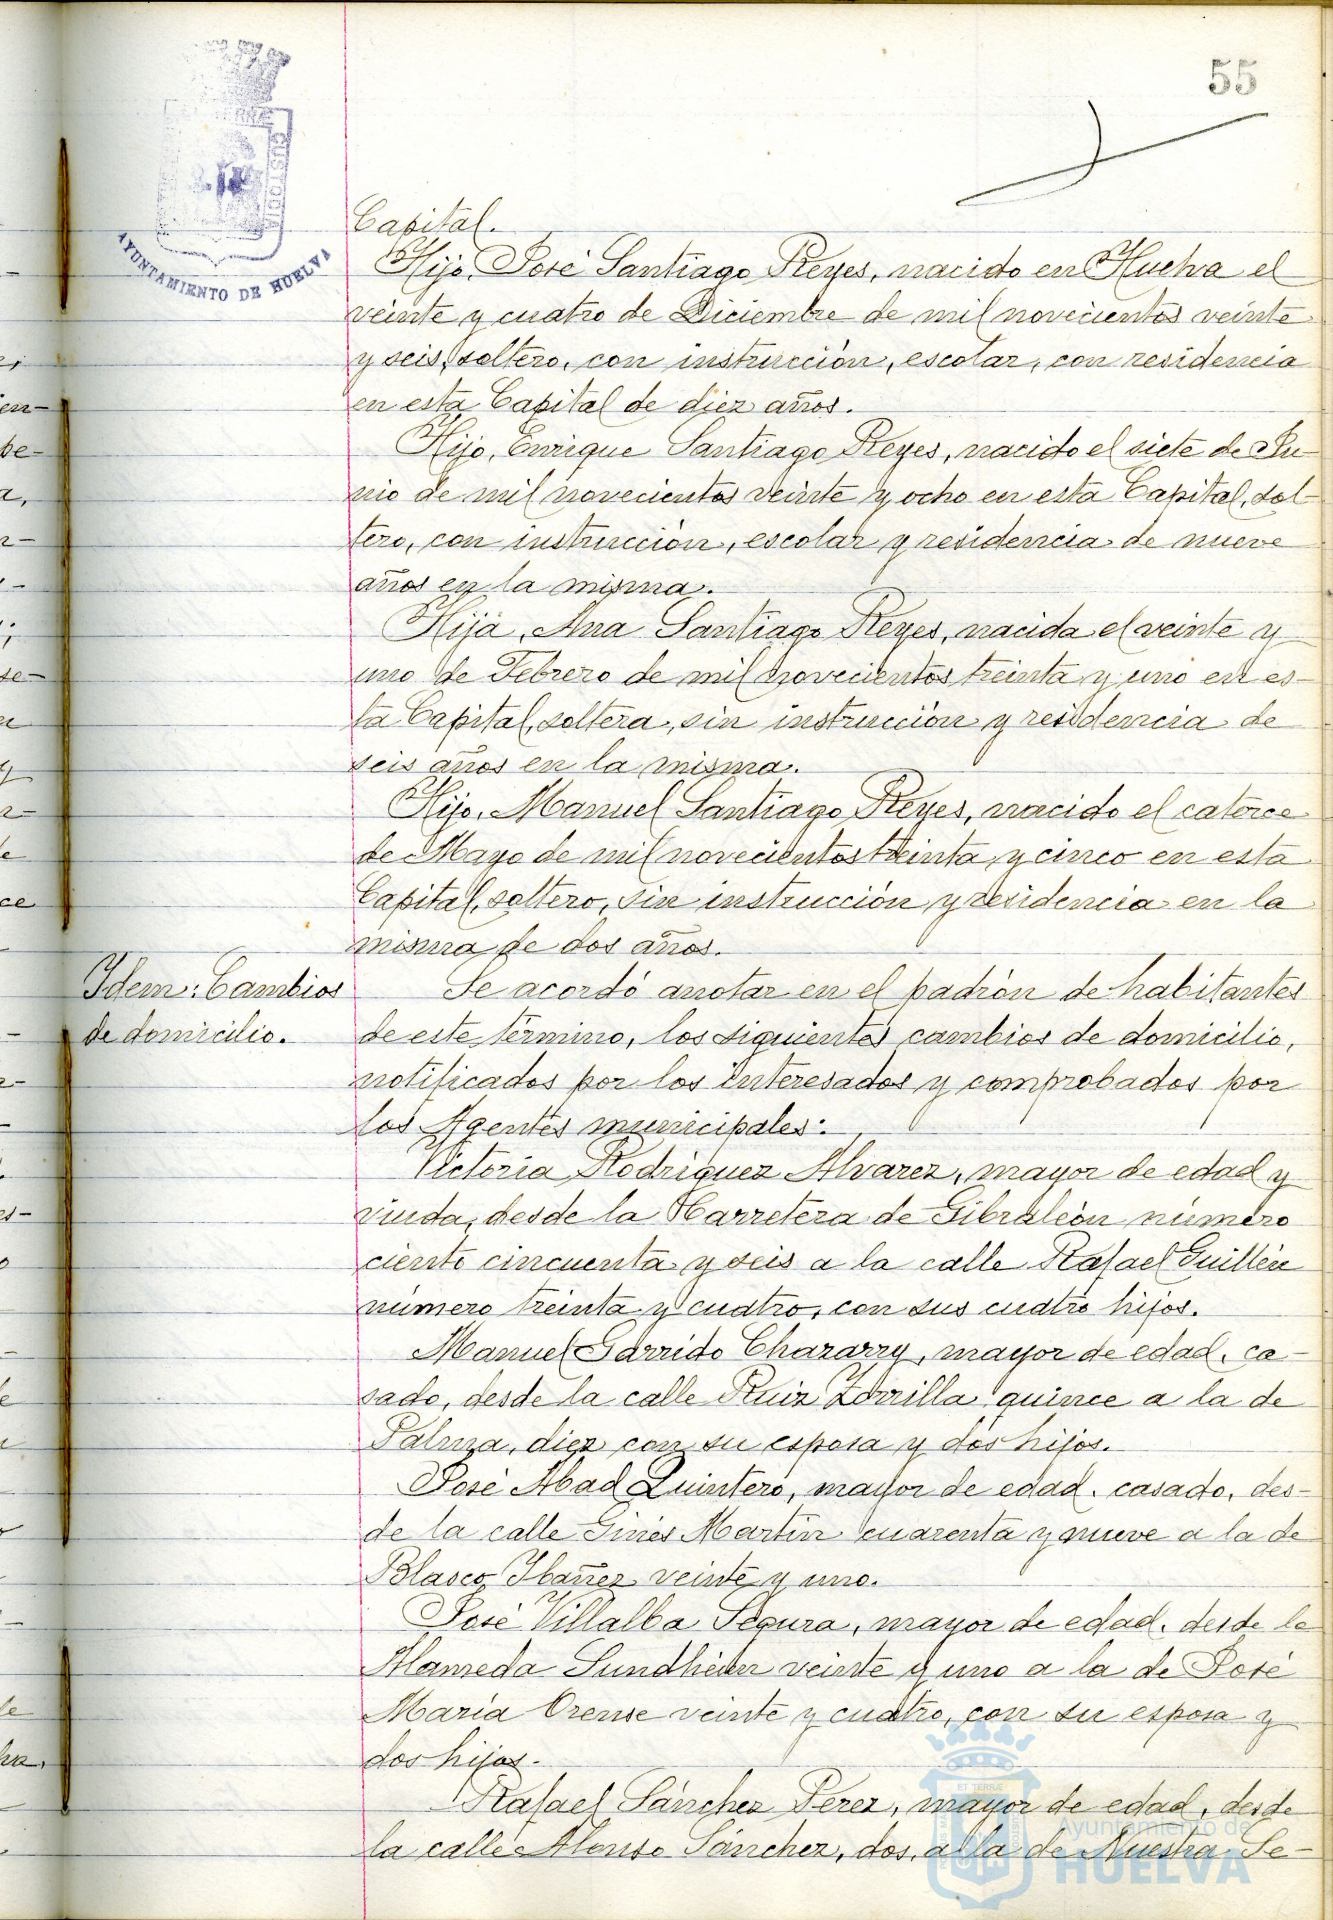 55
ET TERRÆ
CUSTODIA
AYUNTAMIENTO DE HUELVA
Capital.
Hijo, José Santiago Reyes, nacido en Huelva el
veinte y cuatro de Diciembre de mil novecientos veinte
y seis, soltero, con instrucción, escolar, con residencia
en esta Capital de diez años.
Hijo, Enrique Santiago Reyes, nacido el siete de Ju-
nio de mil novecientos veinte y ocho en esta Capital, sol-
tero, con instrucción, escolar y residencia de nueve
años en la misma.
Hija, Ana Santiago Reyes, nacida el veinte y
uno de Febrero de mil novecientos treinta y uno en es-
ta Capital, soltera, sin instrucción y residencia de
seis años en la misma.
Hijo, Manuel Santiago Reyes, nacido el catorce
de Mayo de mil novecientos treinta y cinco en esta
Capital, soltero, sin instrucción y residencia en la
misma de dos años.
Idem: Cambios
de domicilio.
Se acordó anotar en el padrón de habitantes
de este término, los siguientes cambios de domicilio,
notificados por los interesados y comprobados por
los Agentes municipales:
Victoria Rodriguez Alvarez, mayor de edad y
viuda, desde la Carretera de Gibraleón número
ciento cincuenta y seis a la calle Rafael Guillén
número treinta y cuatro, con sus cuatro hijos.
Manuel Garrido Chazarry, mayor de edad, ca-
sado, desde la calle Ruiz Zorrilla quince a la de
Palma, diez con su esposa y dos hijos.
José Abad Quintero, mayor de edad, casado, des-
de la calle Ginés Martín cuarenta y nueve a la de
Blasco Ibañez veinte y uno.
José Villalba Segura, mayor de edad, desde la
Alameda Sundheim veinte y uno a la de José
María Orense veinte y cuatro, con su esposa y
dos hijos.
Rafael Sánchez Perez, mayor de edad, desde
la calle Alonso Sánchez, dos, a la de Nuestra Se-
Ayuntamiento de
HUELVA